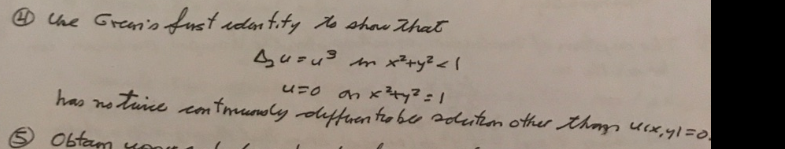 ④ Use Green's first identity to show that
Δ₂u = u³ in x²+y² < 1
u=0 on x²+y²=1
has no twice continuously differentiable solution other than u(x,y)=0.
⑤ Obtain